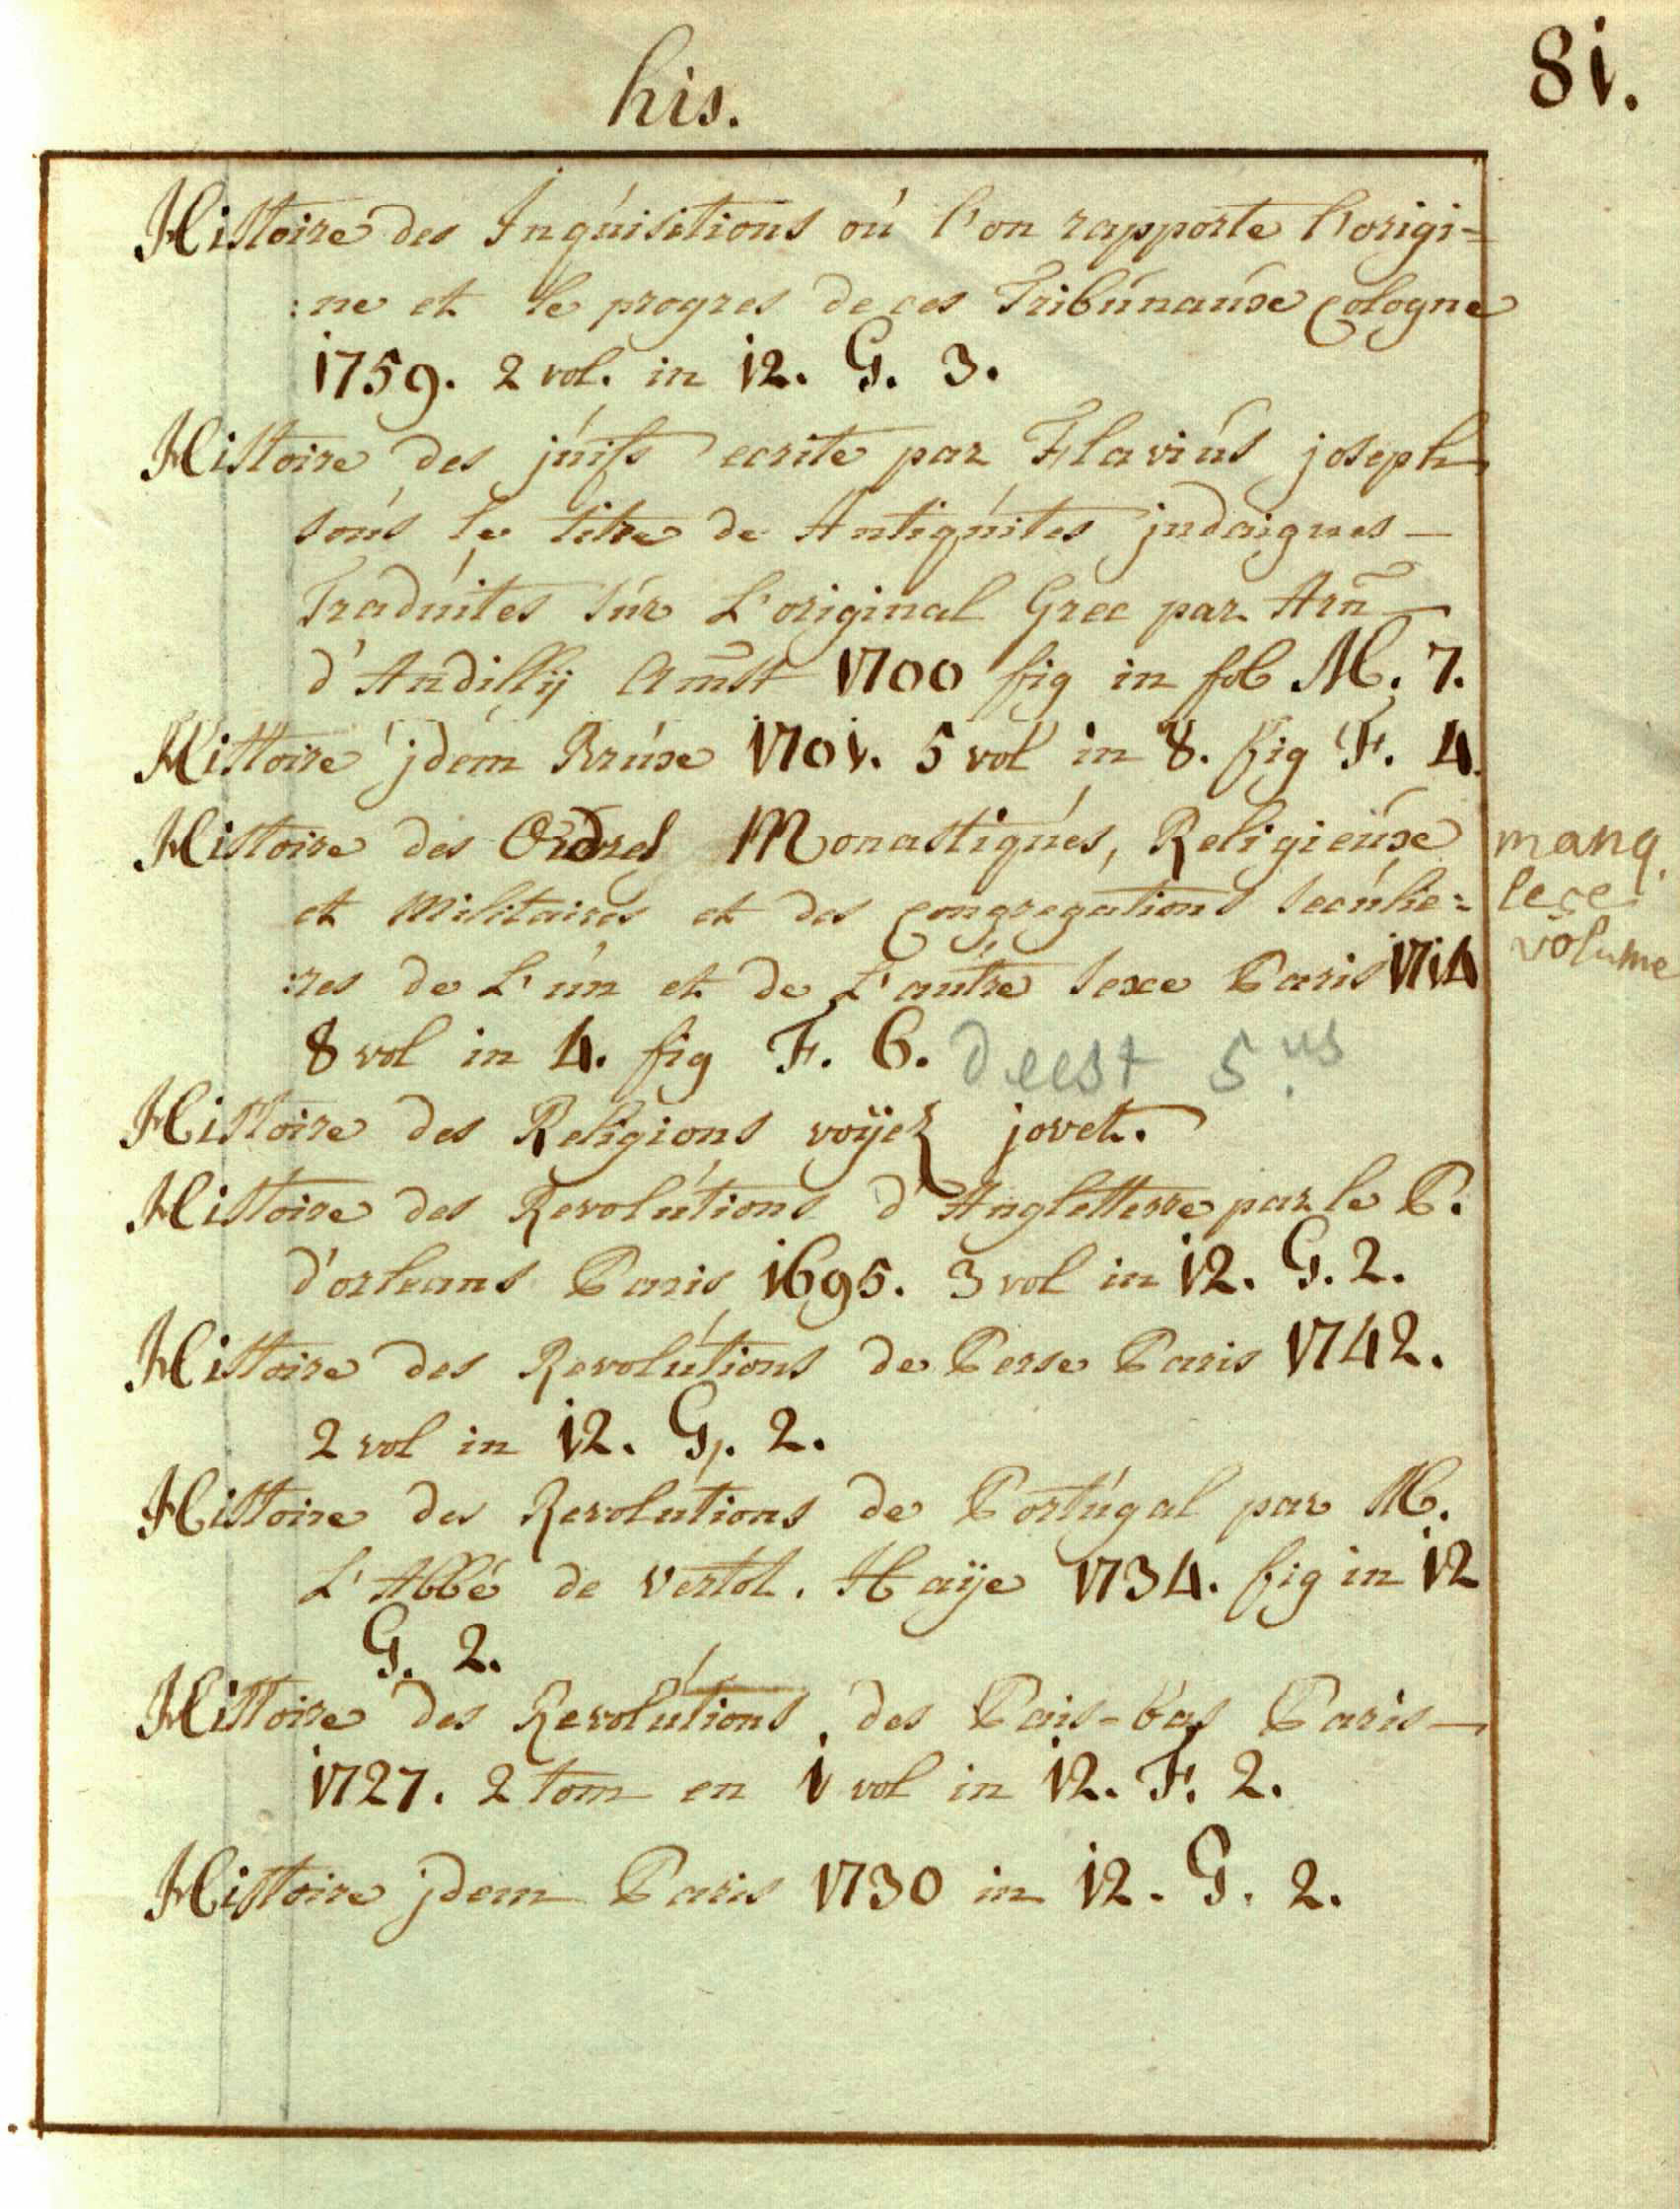 his.
81.
Histoire des Inquisitions où l'on rapporte l'origi=
:ne et le progres de ces Tribunaux Cologne
1759. 2 vol. in 12. G. 3.
Histoire des juifs ecrite par Flavius joseph
sous le titre de Antiquites judaiques —
Traduites sur L'original Grec par Arn̄
d'Andillÿ Amst 1700 fig in fol M. 7.
Histoire jdem Brux 1701. 5 vol in 8. fig F. 4.
Histoire des Ordres Monastiques, Religieux
et Militaires et des congregations seculie=
:res de L'un et de L'autre sexe Paris 1714
8 vol in 4. fig F. 6. deest 5.us
manq.
le 5e
volume
Histoire des Religions voÿez jovet.
Histoire des Revolutions d'Angletterre par le P.
d'orleans Paris 1695. 3 vol in 12. G. 2.
Histoire des Revolutions de Perse Paris 1742.
2 vol in 12. G. 2.
Histoire des Revolutions de Portugal par M.
L'Abbé de Vertot. Haÿe 1734. fig in 12
G. 2.
Histoire des Revolutions des Pais-bas Paris —
1727. 2 tom en 1 vol in 12. F. 2.
Histoire jdem Paris 1730 in 12. G. 2.